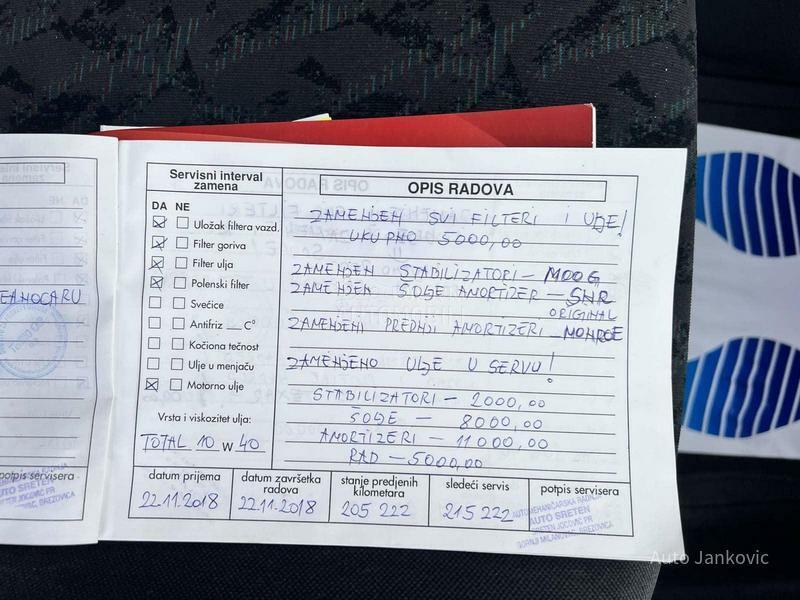 EANOCARU
potpis servisera
Servisni interval
zamena
DA NE
Uložak filtera vazd.
Filter goriva
Filter ulja
Polenski filter
Svećice
Antifriz ___ C°
Kočiona tečnost
Ulje u menjaču
Motorno ulje
Vrsta i viskozitet ulja:
TOTAL 10 W 40
OPIS RADOVA
ZAMENJEN SVI FILTERI I ULJE!
UKUPNO 5000,00
ZAMENJEN STABILIZATORI – MOOG
ZAMENJEN ŠOLJE AMORTIZER – SNR
ORIGINAL
ZAMENJENI PREDNJI AMORTIZERI – MONROE
ZAMENJENO ULJE U SERVU!
STABILIZATORI – 2000,00
ŠOLJE – 8000,00
AMORTIZERI – 11000,00
RAD – 5000,00
datum prijema
22.11.2018
datum završetka
radova
22.11.2018
stanje predjenih
kilometara
205 222
sledeći servis
215 222
potpis servisera
AUTOMEHANIČARSKA RADNJA
AUTO SRETEN
SRETEN JOCOVIĆ PR
GORNJI MILANOVAC, BREZOVICA
Auto Jankovic